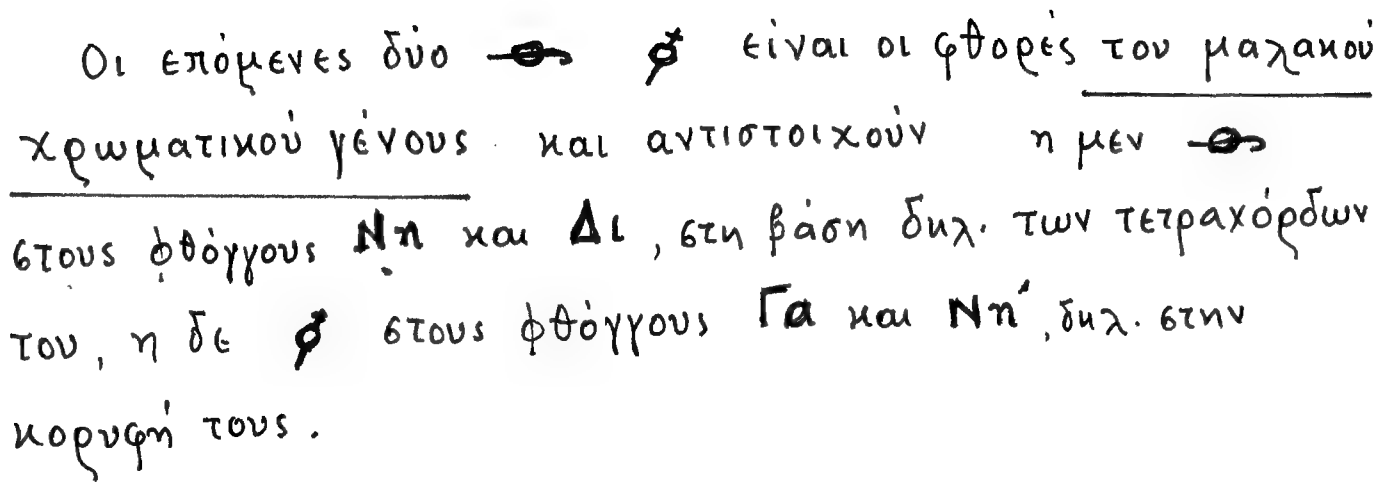 Οι επόμενες δύο είναι οι φθορές του μαλακού
χρωματικού γένους και αντιστοιχούν η μεν
στους φθόγγους Νη και Δι, στη βάση δηλ. των τετραχόρδων
του, η δε στους φθόγγους Γα και Νη΄, δηλ. στην
κορυφή τους.